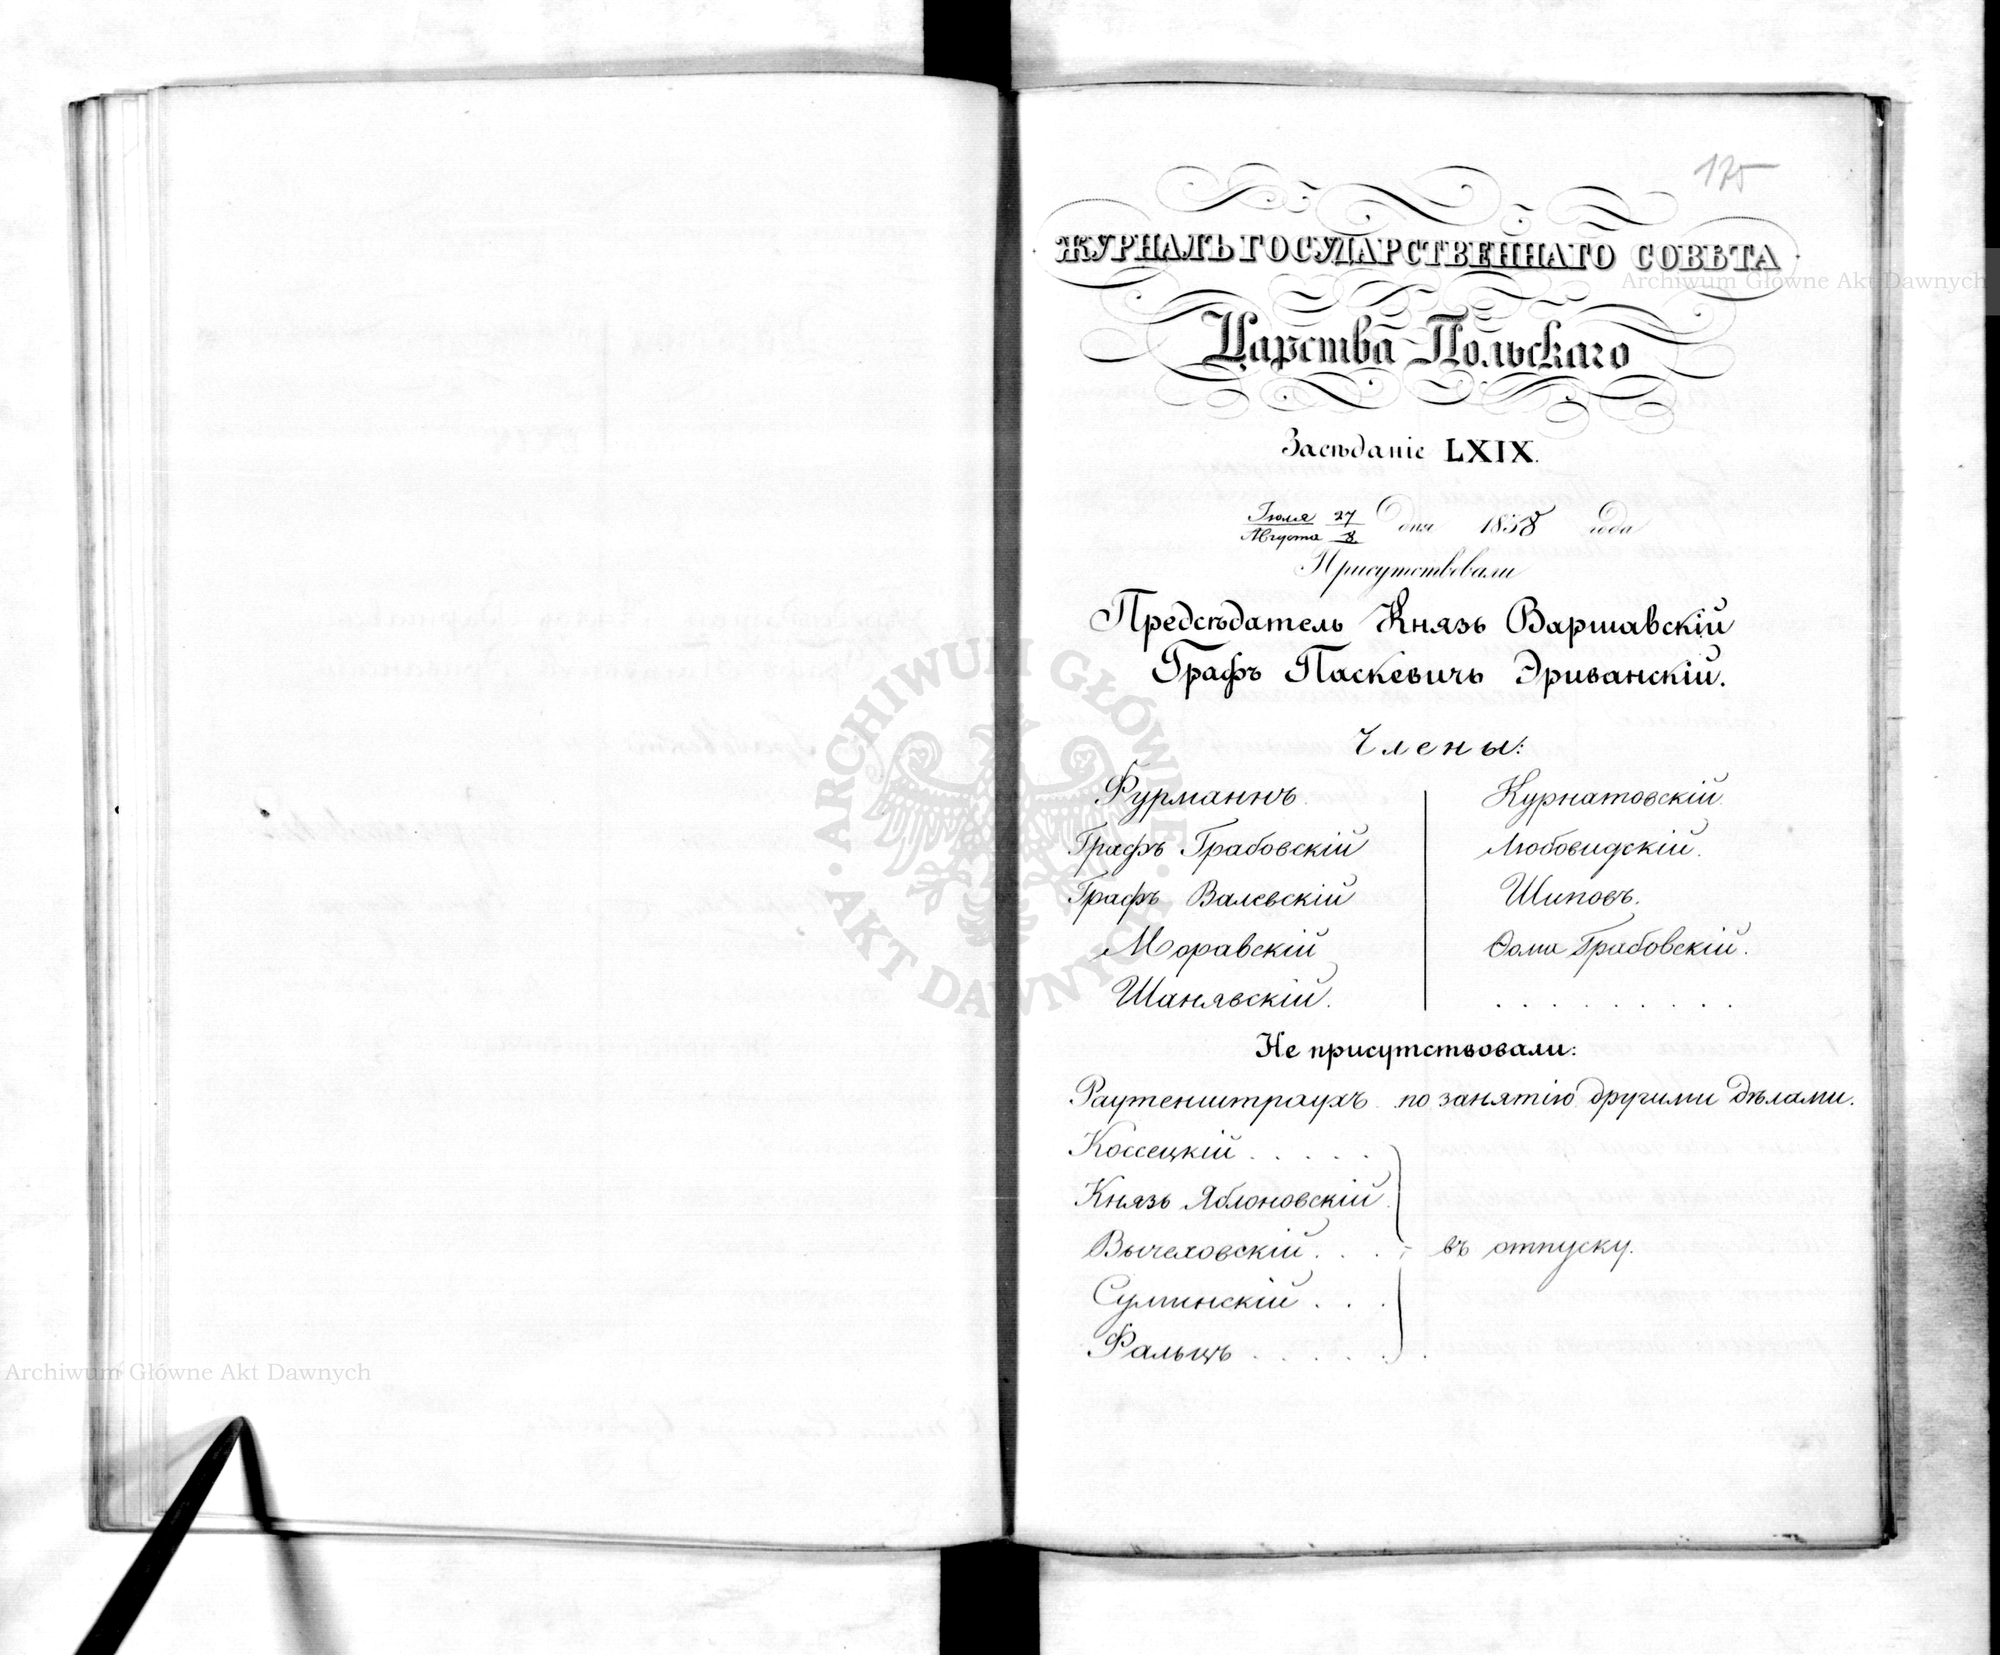 175
ЖУРНАЛЪ ГОСУДАРСТВЕННАГО СОВѢТА
Царства Польскаго
Засѣданіе LXIX.
Іюля 27
Августа 8 дня 1838 года
Присутствовали
Предсѣдатель Князь Варшавскій
Графъ Паскевичъ Эриванскій.
Члены:
Фурманнъ.
Графъ Грабовскій
Графъ Валевскій
Моравскій
Шанявскій.
Курнатовскій.
Любовидскій.
Шиповъ.
Ѳома Грабовскій.
. . . . . . . . .
Не присутствовали:
Раутенштраухъ по занятію другими дѣлами.
Коссецкій . . . . .
Князь Яблоновскій.
Вычеховскій . . . въ отпуску.
Сулминскій . . .
Фальцъ . . . . . .
Archiwum Główne Akt Dawnych
ARCHIWUM GŁÓWNE · AKT DAWNYCH ·
Archiwum Główne Akt Dawnych